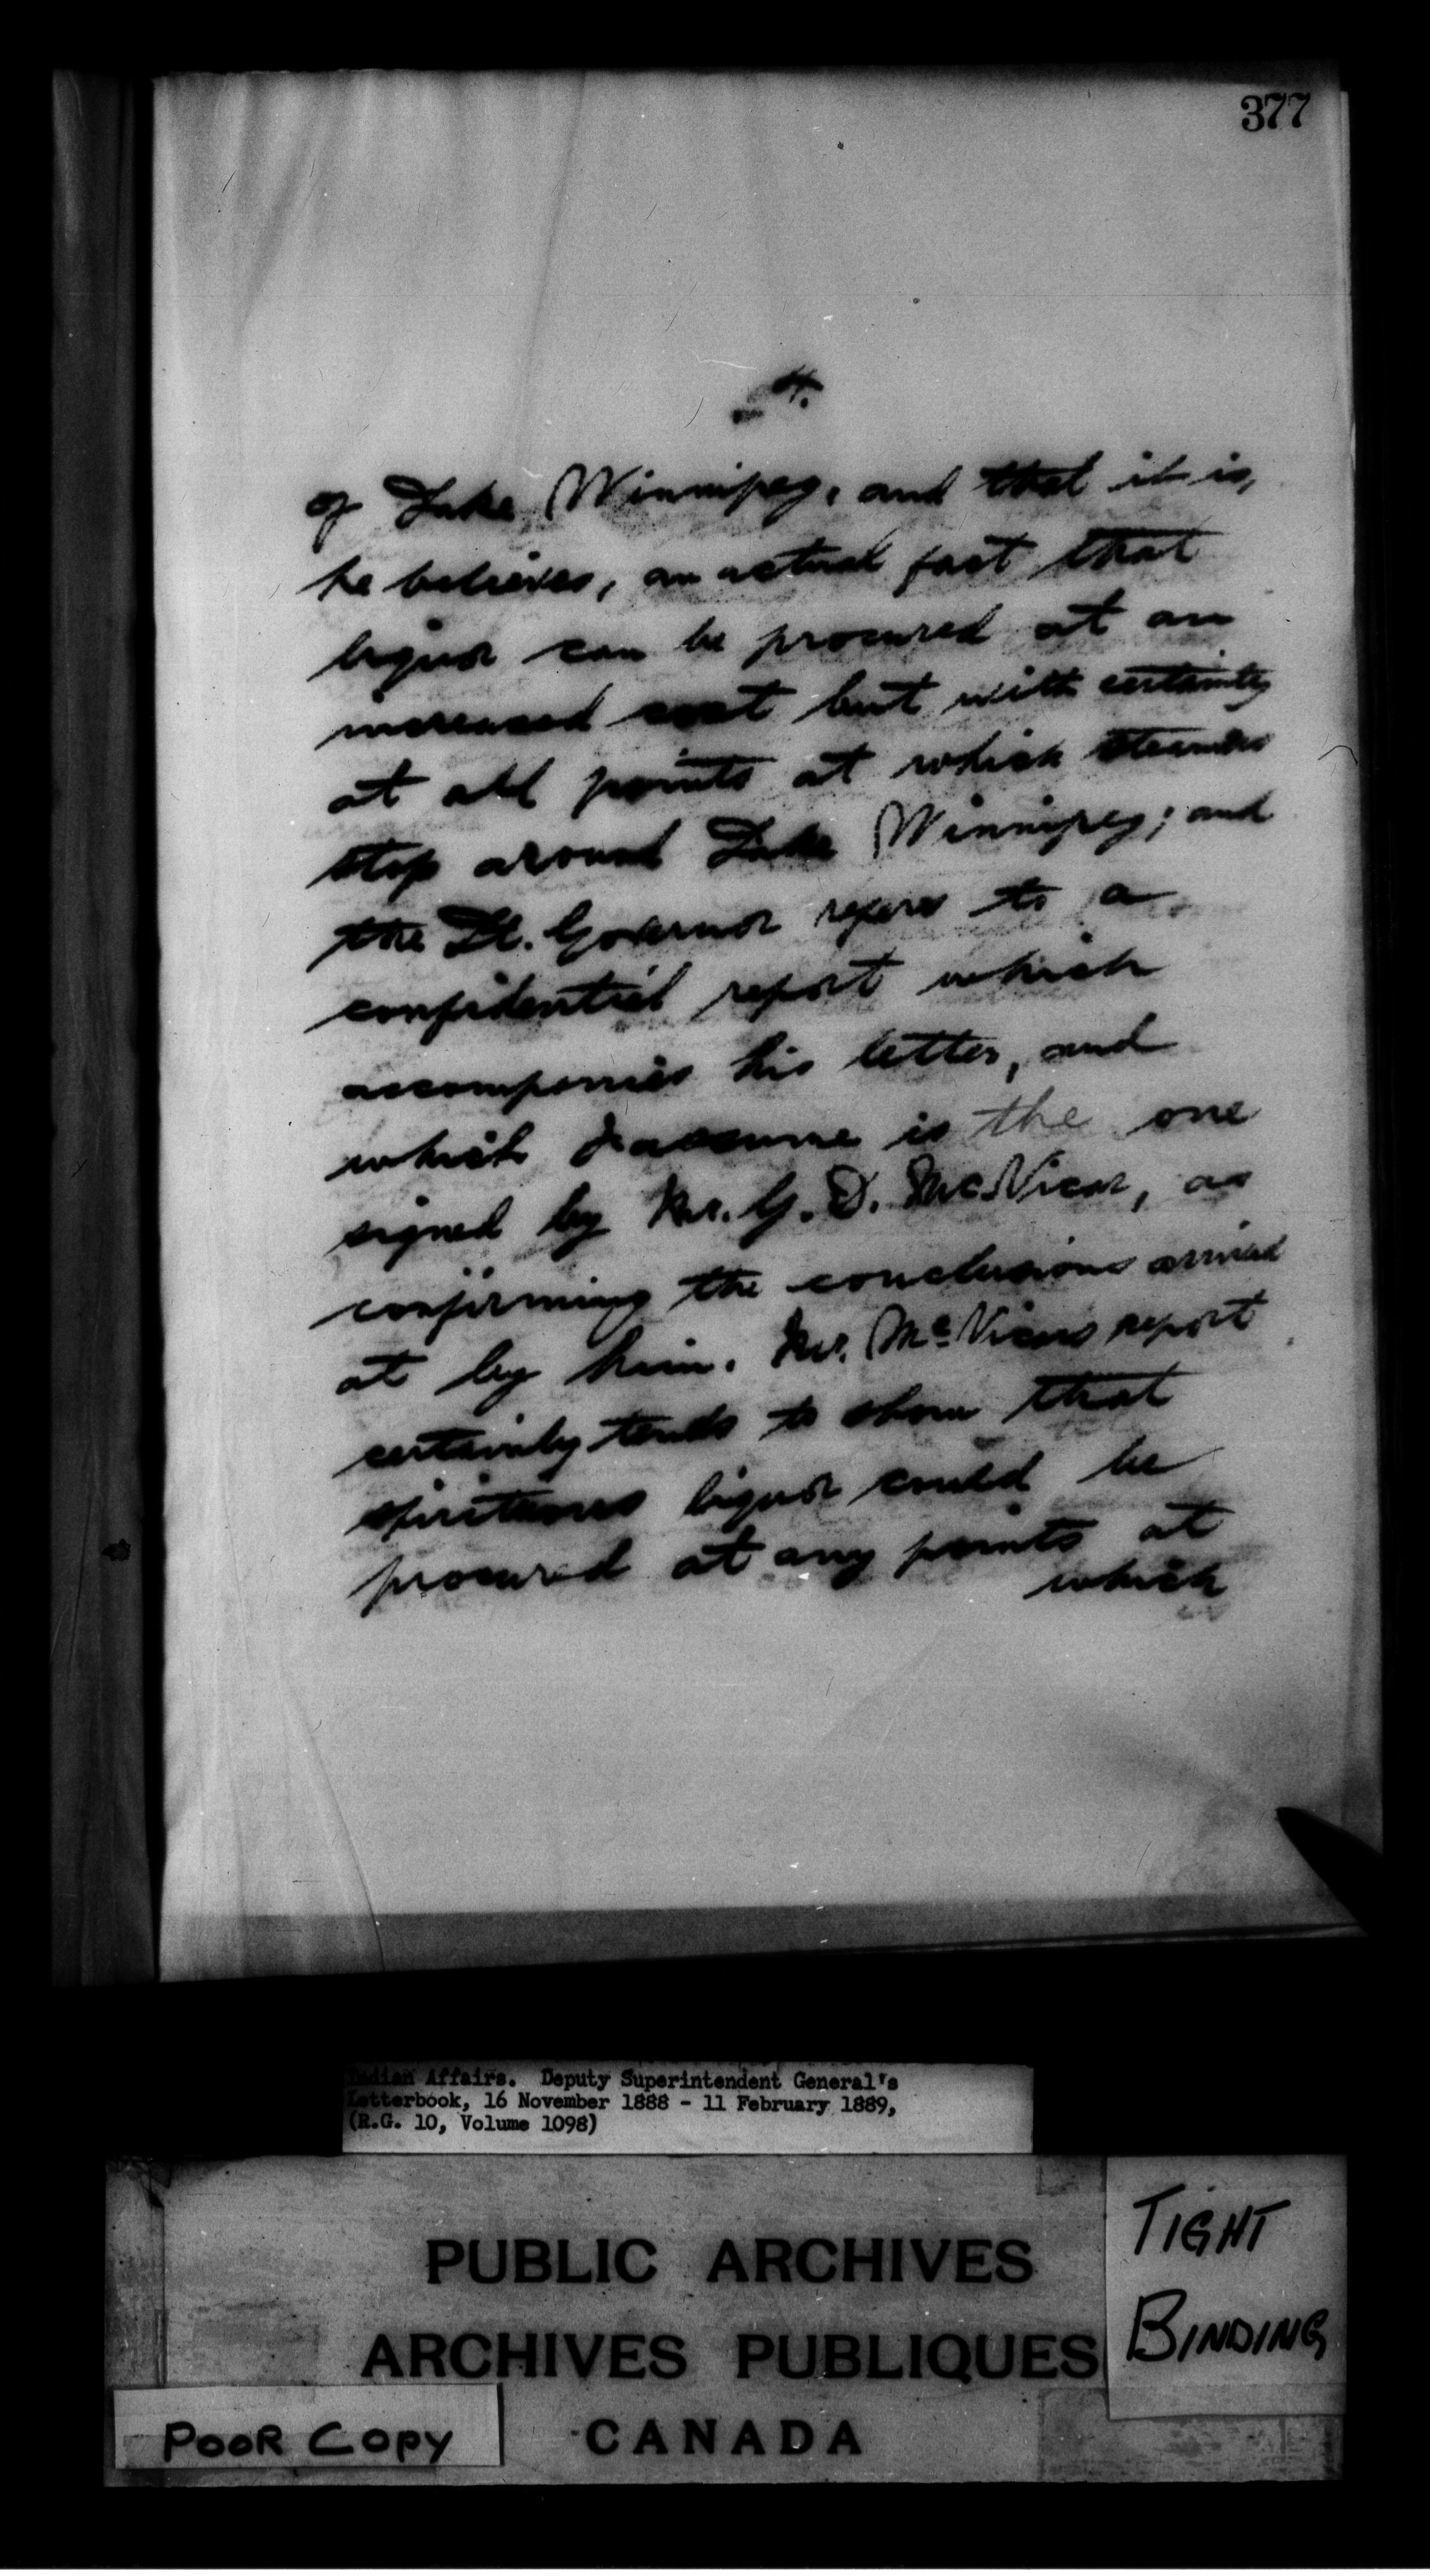 377
4.
of Lake Winnipeg, and that it is,
he believes, an actual fact that
liquor can be procured at an
increased cost but with certainty
at all points at which steamers
stop around Lake Winnipeg; and
the Lt. Governor refers to a
confidential report which
accompanies his letter, and
which I assume is the one
signed by Mr. G. D. McVicar, as
confirming the conclusions arrived
at by him. Mr. McVicars report
certainly tends to show that
spirituous liquor could be
procured at any points at
which
Indian Affairs. Deputy Superintendent General's
Letterbook, 16 November 1888 - 11 February 1889,
(R.G. 10, Volume 1098)
PUBLIC ARCHIVES
ARCHIVES PUBLIQUES
CANADA
TIGHT
BINDING
POOR COPY